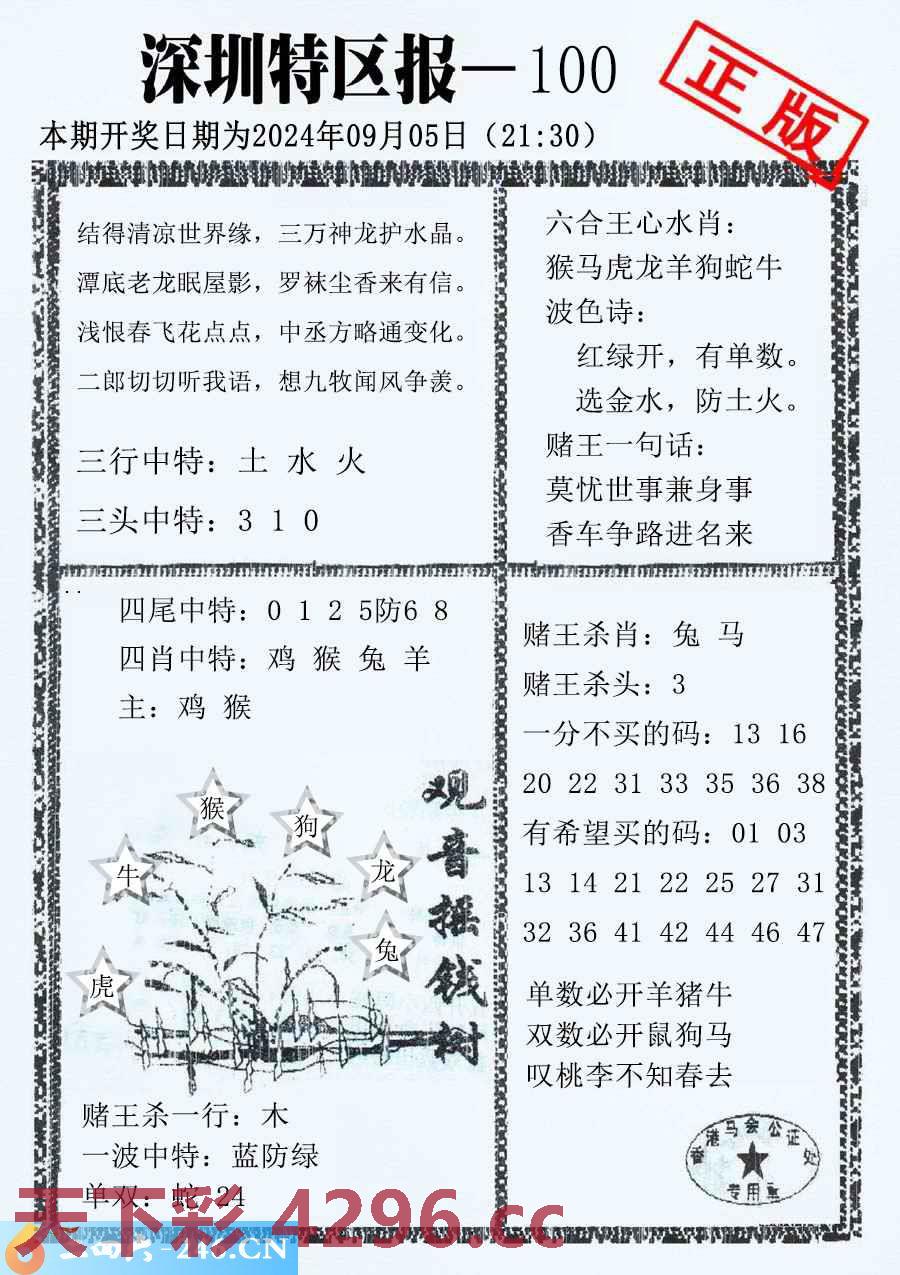 深圳特区报—100
正版
本期开奖日期为2024年09月05日（21:30）
结得清凉世界缘，三万神龙护水晶。
潭底老龙眠屋影，罗袜尘香来有信。
浅恨春飞花点点，中丞方略通变化。
二郎切切听我语，想九牧闻风争羡。
三行中特：土 水 火
三头中特：3 1 0
六合王心水肖：
猴马虎龙羊狗蛇牛
波色诗：
红绿开，有单数。
选金水，防土火。
赌王一句话：
莫忧世事兼身事
香车争路进名来
四尾中特：0 1 2 5防6 8
四肖中特：鸡 猴 兔 羊
主：鸡 猴
猴
狗
牛
龙
兔
虎
观音摇钱树
赌王杀一行：木
一波中特：蓝防绿
单双：蛇 24
赌王杀肖：兔 马
赌王杀头：3
一分不买的码：13 16
20 22 31 33 35 36 38
有希望买的码：01 03
13 14 21 22 25 27 31
32 36 41 42 44 46 47
单数必开羊猪牛
双数必开鼠狗马
叹桃李不知春去
香港马会公证处
专用章
天下彩 4296.cc
246.CN